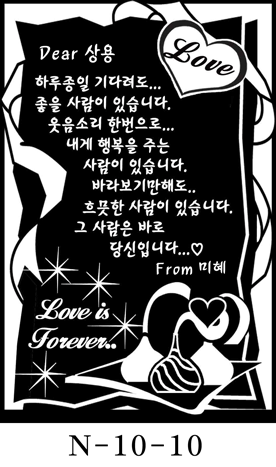 Love
Dear 상용
하루종일 기다려도...
좋을 사람이 있습니다.
웃음소리 한번으로...
내게 행복을 주는
사람이 있습니다.
바라보기만해도..
흐뭇한 사람이 있습니다.
그 사람은 바로
당신입니다...♡
From 미혜
Love is
Forever..
N-10-10